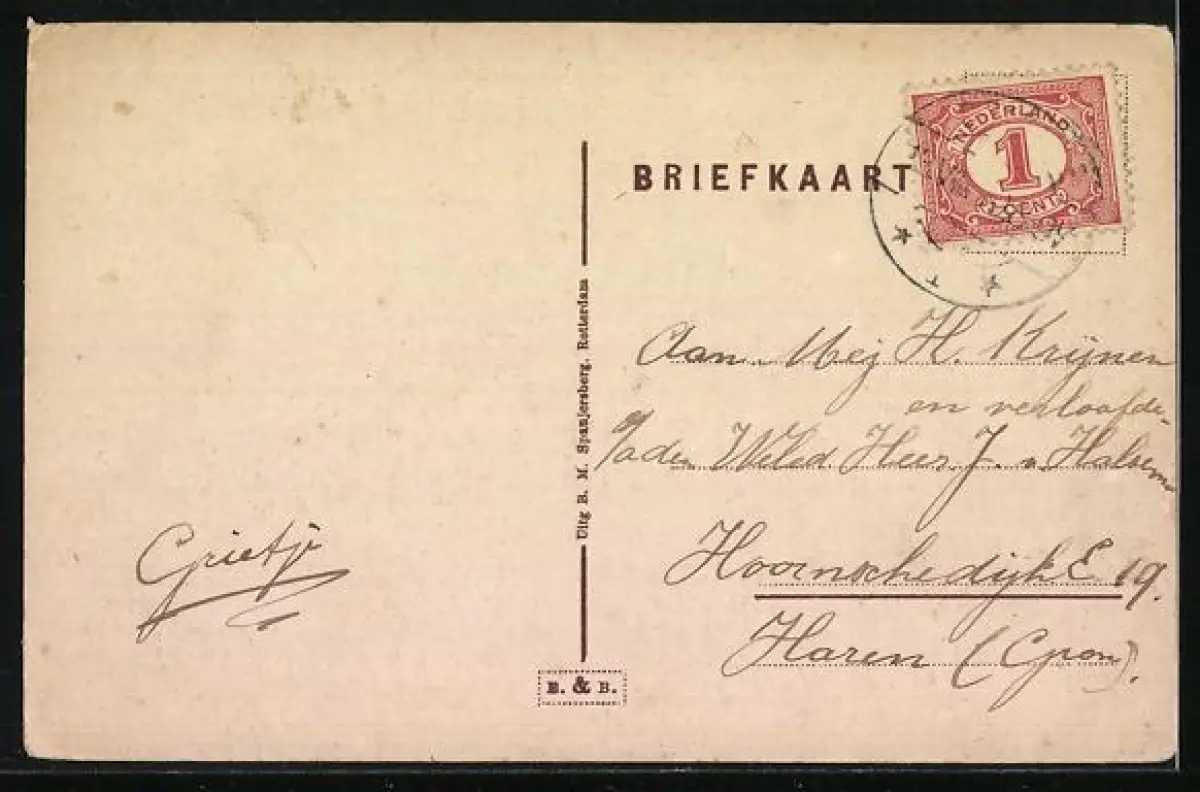 BRIEFKAART
NEDERLAND
1
CENT
Aan Mej H. Krijnen
en verloofde
p/a den WelEd Heer J. v. Halsema
Hoornschedijk E 19.
Haren (Gron).
Grietje
Uitg R. M. Spanjersberg, Rotterdam
B. & B.